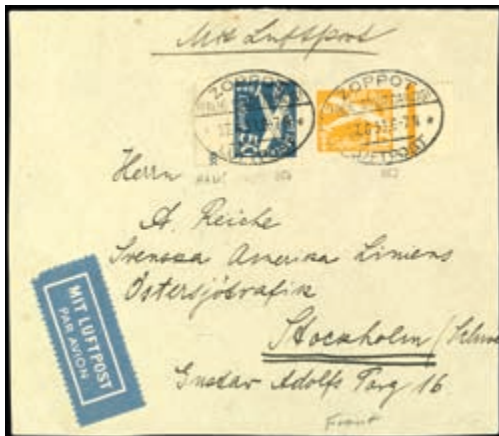 Mit Luftpost
ZOPPOT
ZOPPOT
LUFTPOST
LUFTPOST
Herrn
A. Reiche
Svenska Amerika Liniens
Östersjötrafik
Stockholm
Gustav Adolfs Torg 16.
MIT LUFTPOST
PAR AVION
Front